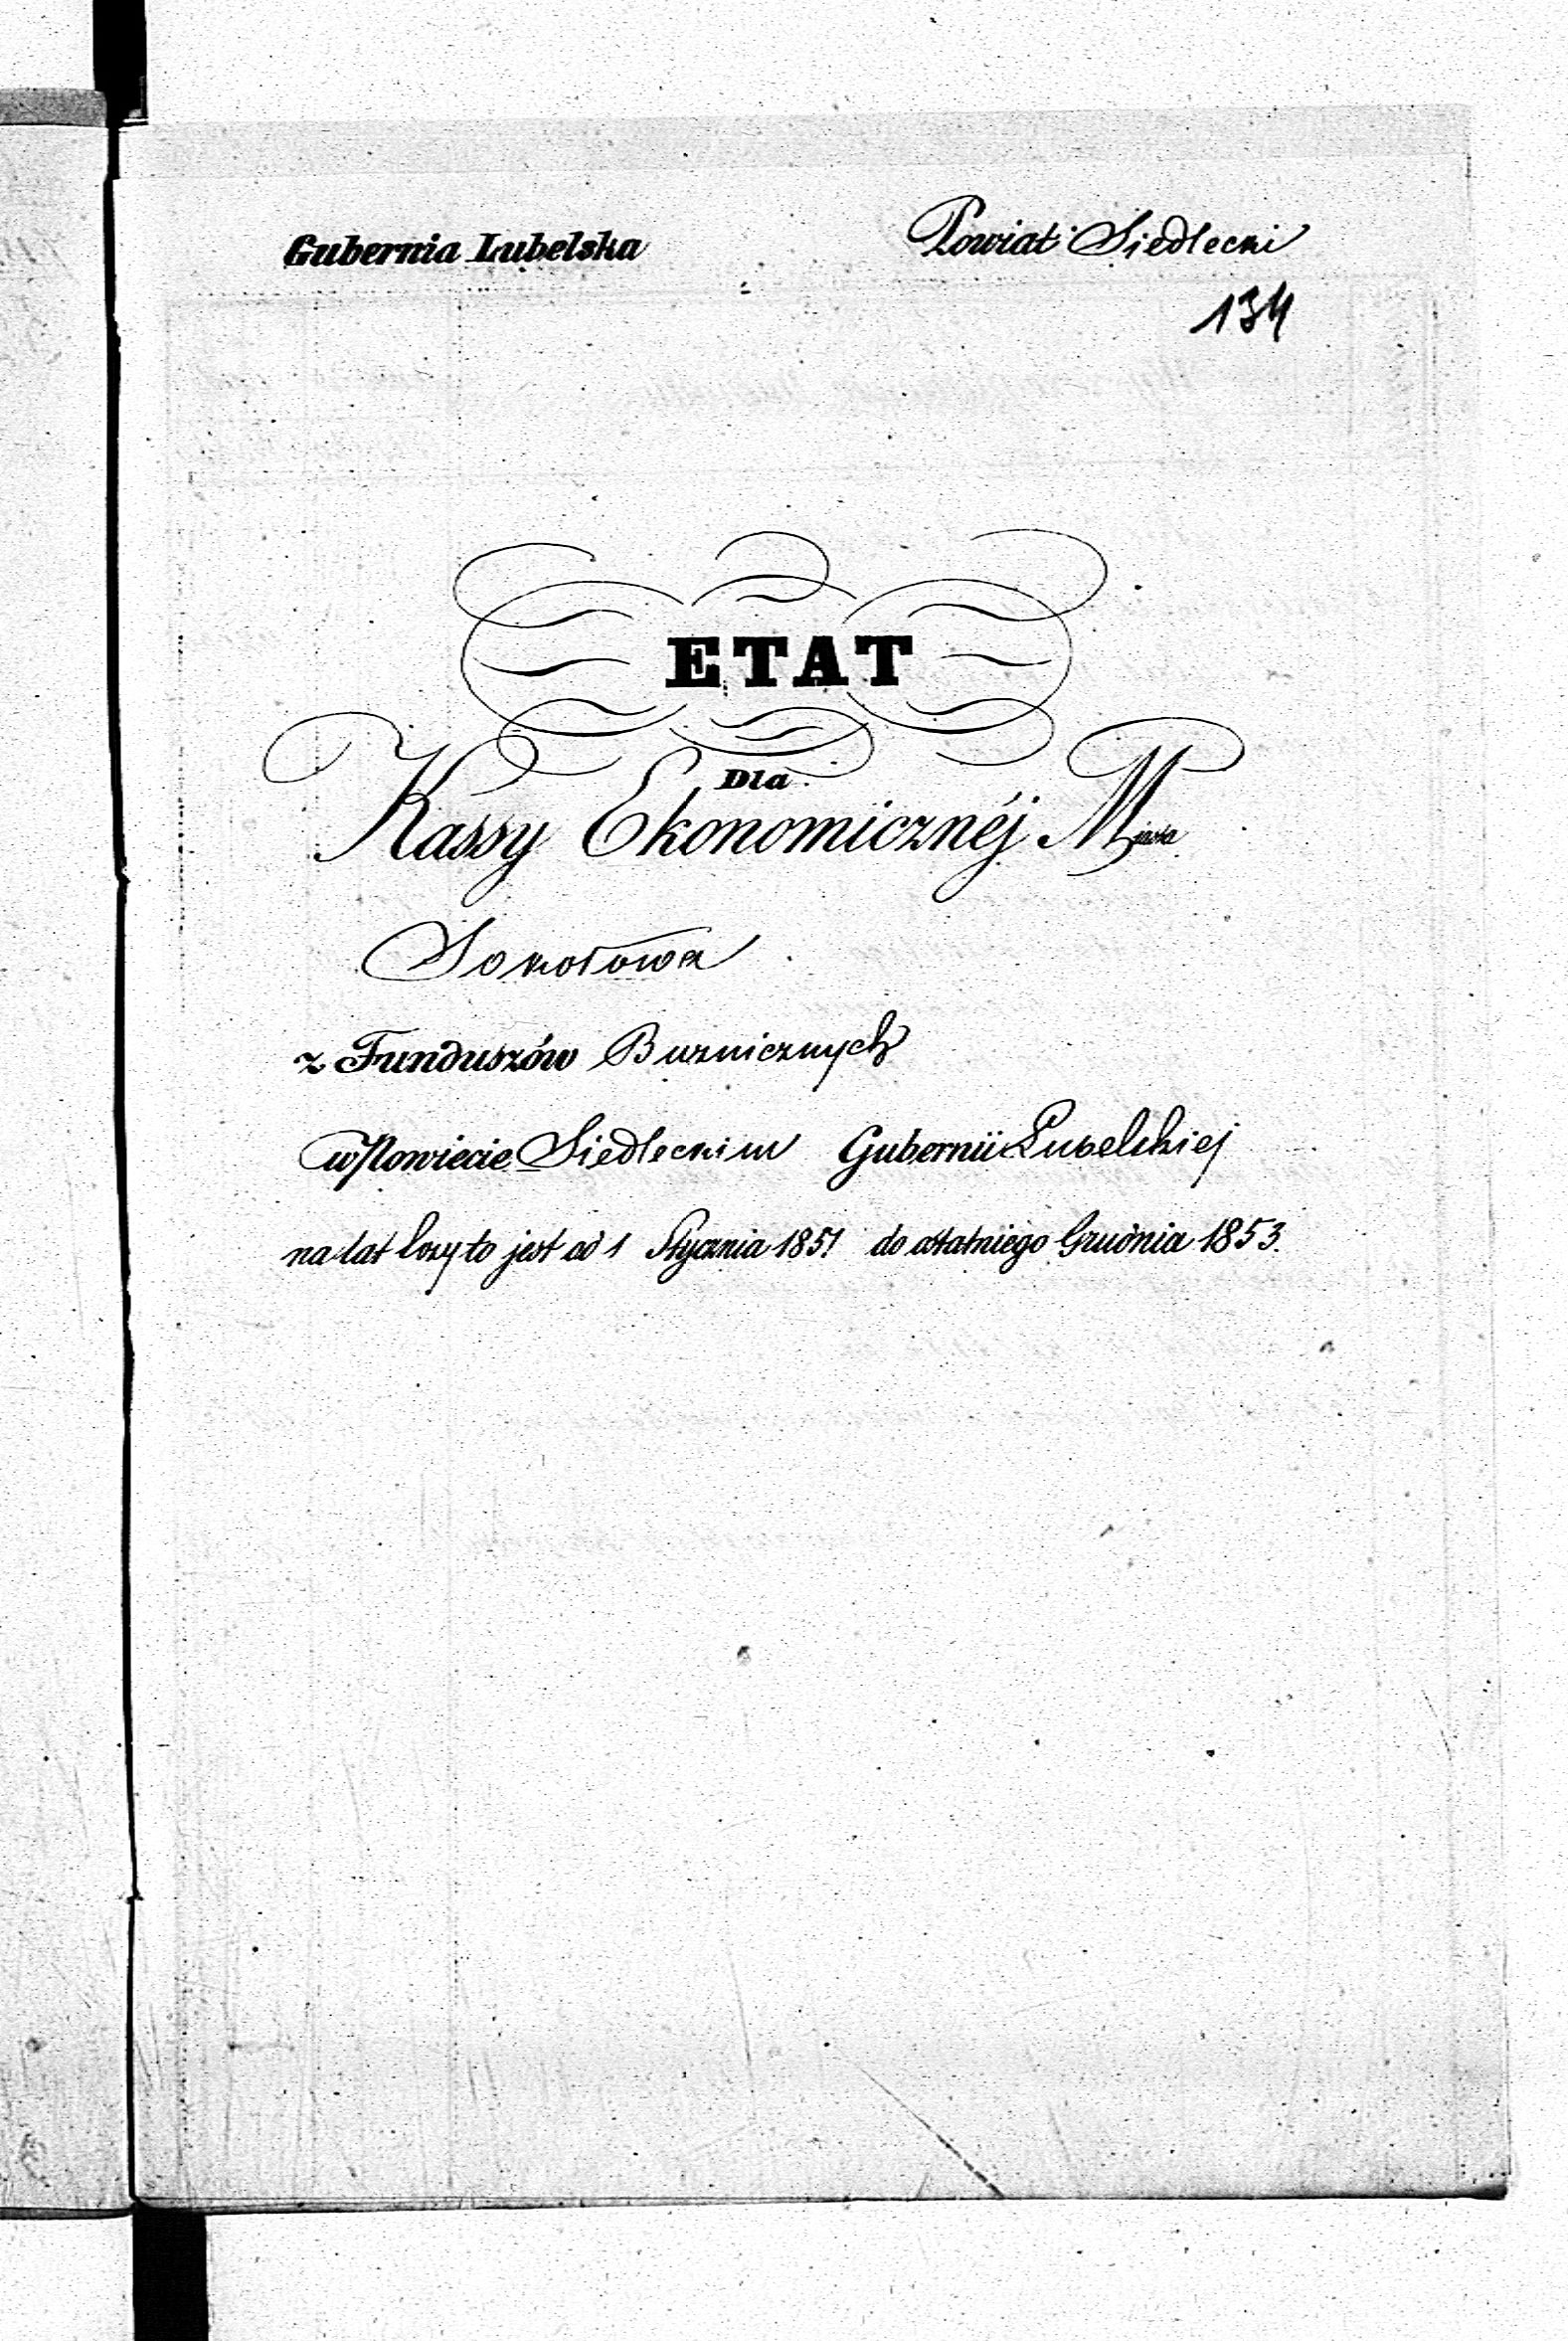 Gubernia Lubelska
Powiat Siedlecki
134
ETAT
Dla
Kassy Ekonomicznéj Miasta
Sokołowa
z Funduszów Buzniczych
w Powiecie Siedleckim Gubernii Lubelskiej
na lat trzy to jest od 1 Stycznia 1851 do ostatniego Grudnia 1853.